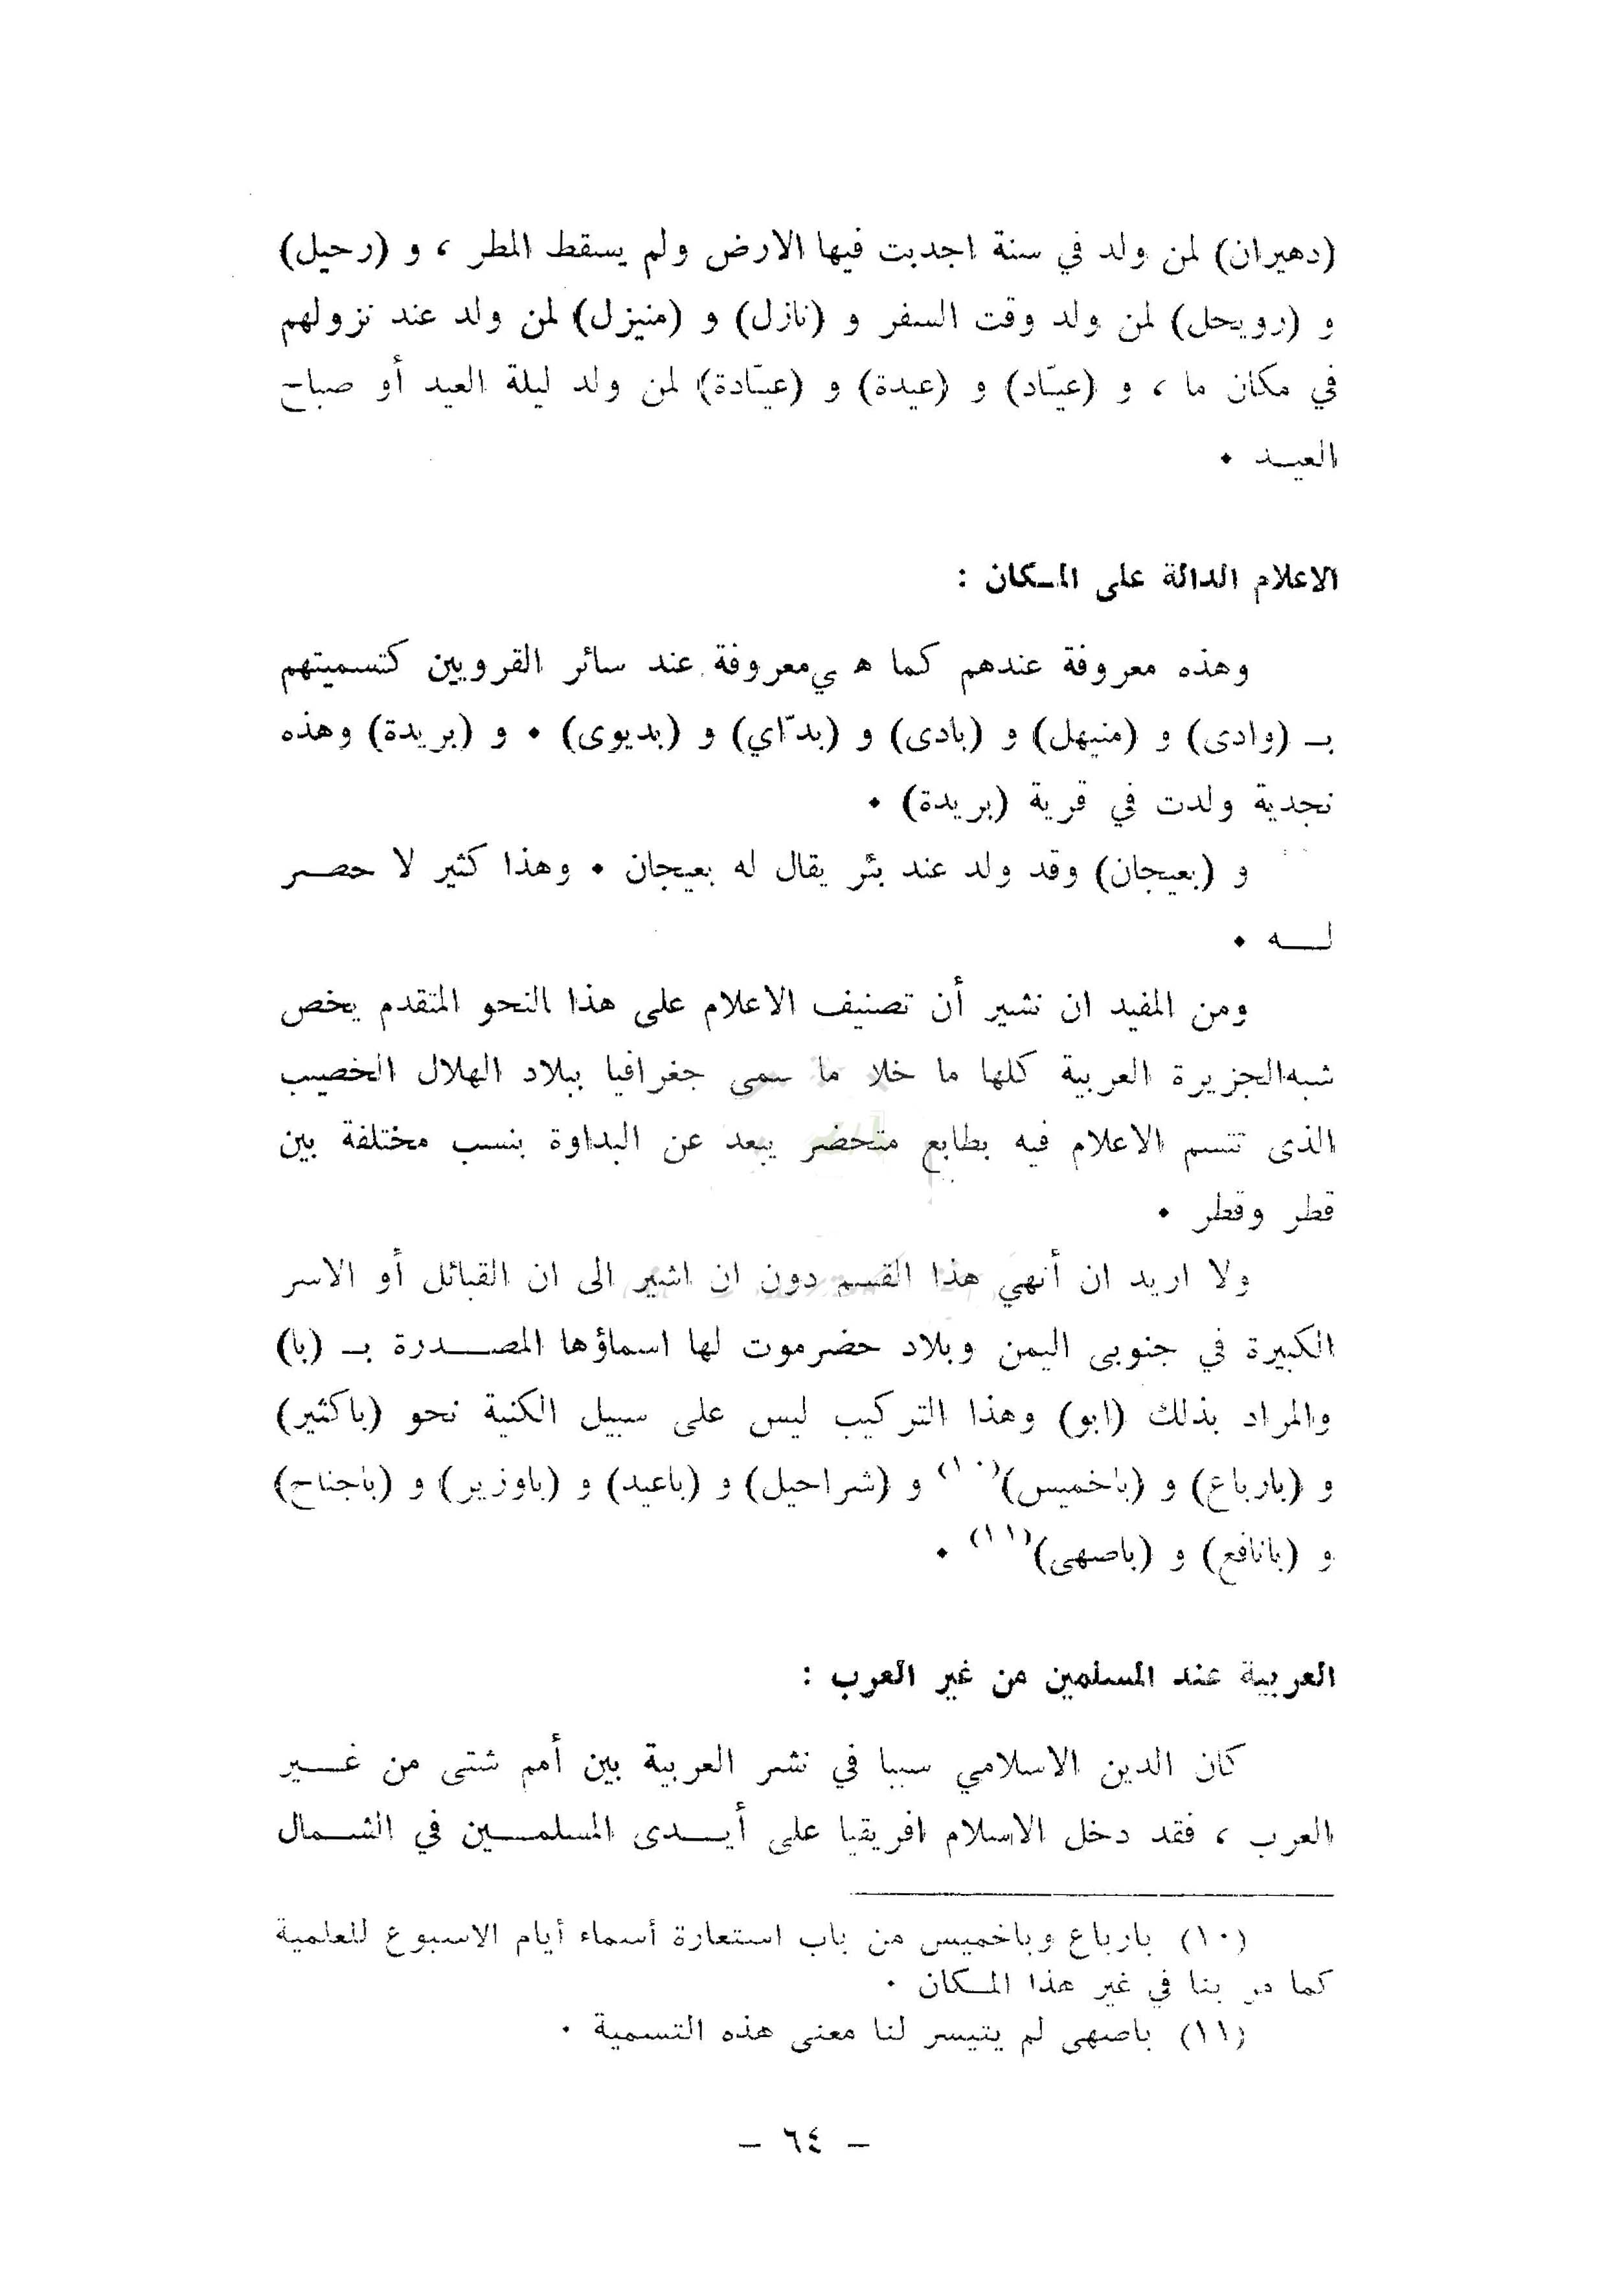 (دهيران) لمن ولد في سنة اجدبت فيها الارض ولم يسقط المطر ، و (رحيل)
و (رويحل) لمن ولد وقت السفر و (نازل) و (منيزل) لمن ولد عند نزولهم
في مكان ما ، و (عيّاد) و (عيدة) و (عيّادة) لمن ولد ليلة العيد أو صباح
العيـد .
الاعلام الدالة على المـكان :
وهذه معروفة عندهم كما هي معروفة عند سائر القرويين كتسميتهم
بـ (وادى) و (منيهل) و (بادى) و (بدّاي) و (بديوى) . و (بريدة) وهذه
نجدية ولدت في قرية (بريدة) .
و (بعيجان) وقد ولد عند بئر يقال له بعيجان . وهذا كثير لا حصـر
لـــه .
ومن المفيد ان نشير أن تصنيف الاعلام على هذا النحو المتقدم يخص
شبه الجزيرة العربية كلها ما خلا ما سمى جغرافيا ببلاد الهلال الخصيب
الذى تتسم الاعلام فيه بطابع متحضر يبعد عن البداوة بنسب مختلفة بين
قطر وقطر .
ولا اريد ان أنهي هذا القسم دون ان اشير الى ان القبائل أو الاسر
الكبيرة في جنوبى اليمن وبلاد حضرموت لها اسماؤها المصـــدرة بـ (با)
والمراد بذلك (ابو) وهذا التركيب ليس على سبيل الكنية نحو (باكثير)
و (بارباع) و (باخميس)(١٠) و (شراحيل) و (باعيد) و (باوزير) و (باجناح)
و (بانافع) و (باصهى)(١١) .
العربية عند المسلمين من غير العرب :
كان الدين الاسلامي سببا في نشر العربية بين أمم شتى من غـــير
العرب ، فقد دخل الاسلام افريقيا على أيـــدى المسلمـــين في الشـــمال
(١٠) بارباع وباخميس من باب استعارة أسماء أيام الاسبوع للعلمية
كما مر بنا في غير هذا المـكان .
(١١) باصهى لم يتيسر لنا معنى هذه التسمية .
– ٦٤ –